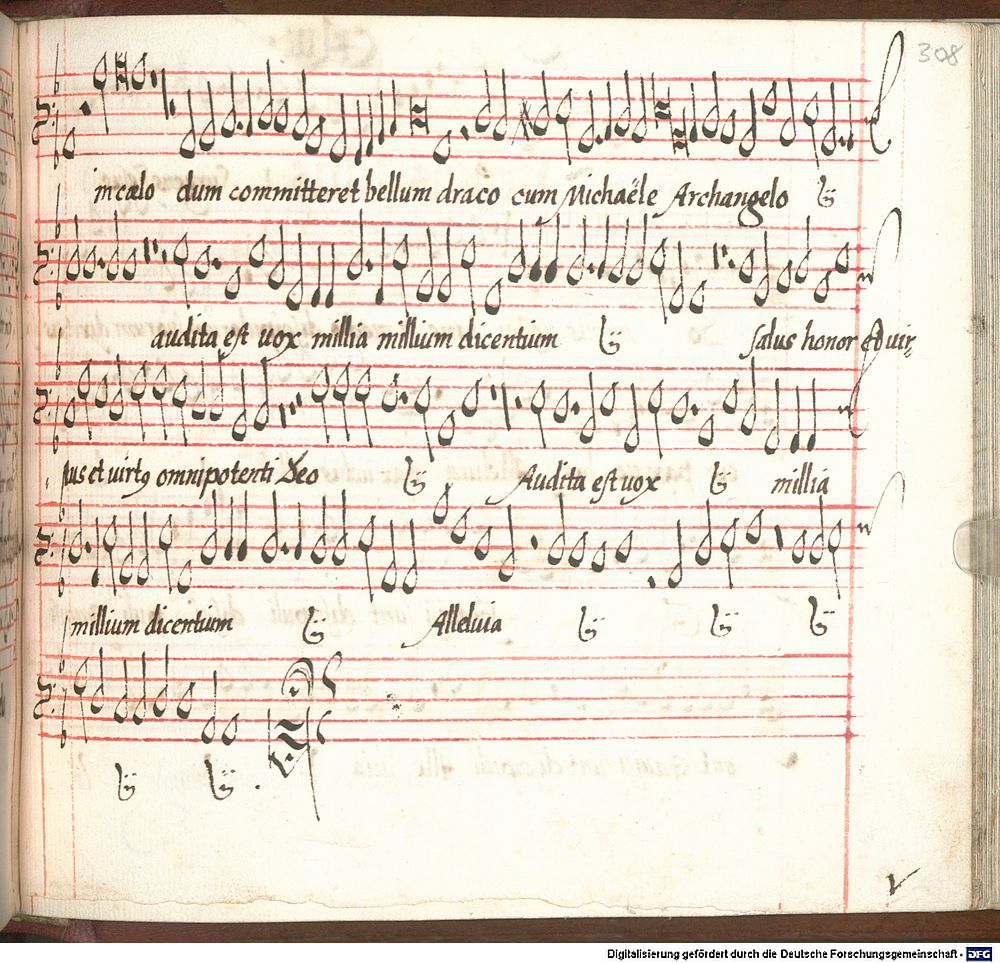 308
in cælo dum committeret bellum draco cum Michaële Archangelo ij
audita est uox millia millium dicentium ij Salus honor et uir-
tus et uirtꝰ omnipotenti Deo ij Audita est uox ij millia
millium dicentium ij Alleluia ij ij ij
ij ij .
Digitalisierung gefördert durch die Deutsche Forschungsgemeinschaft - DFG